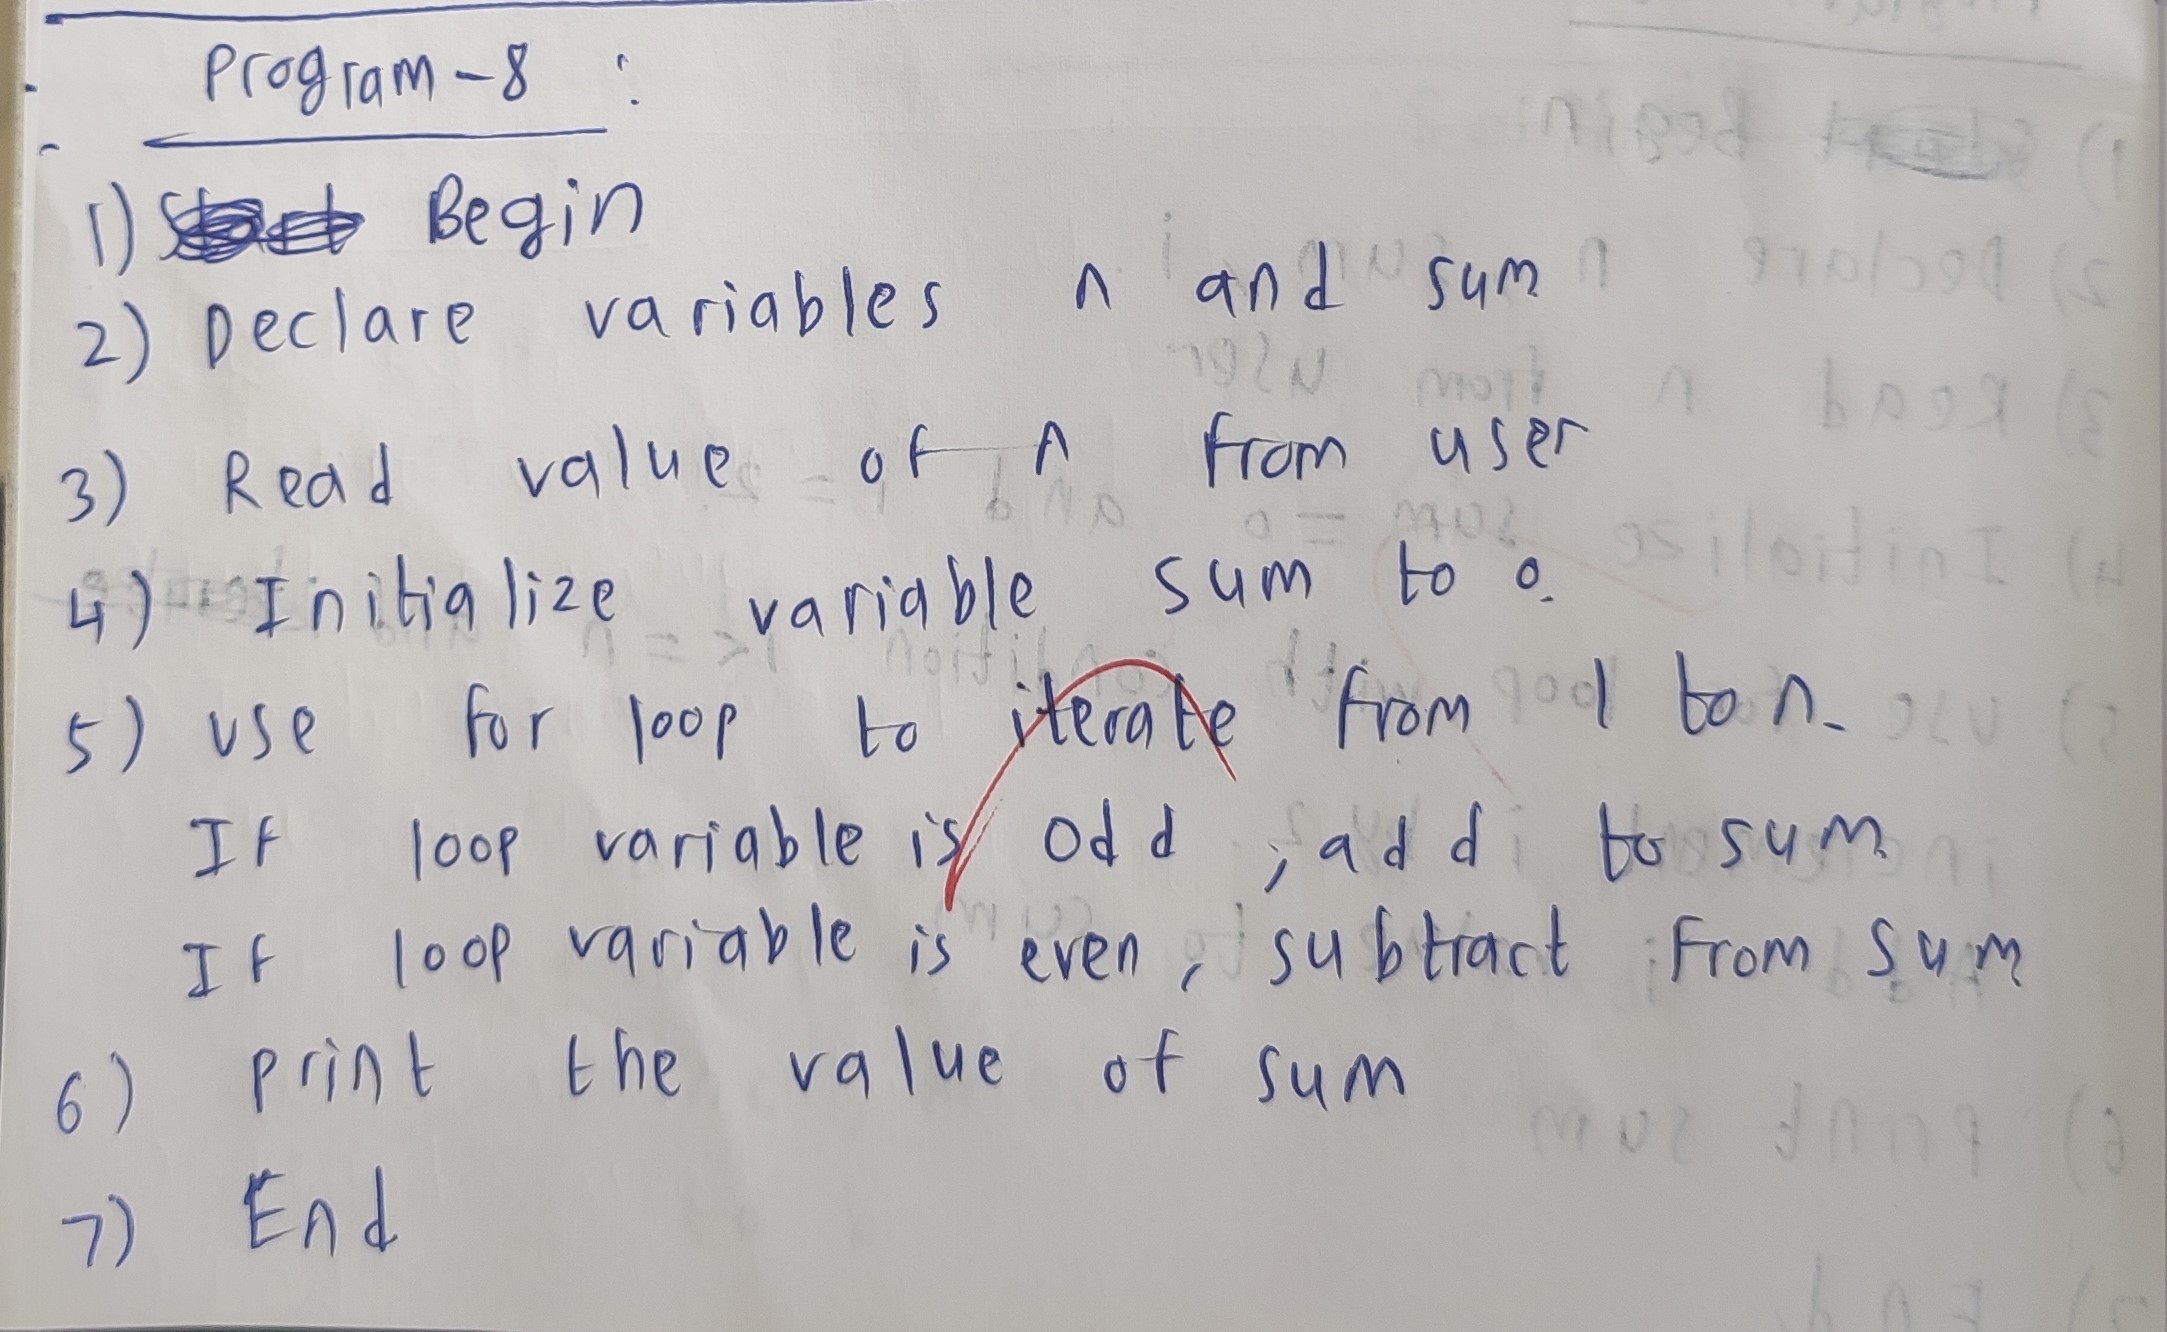 Program-8 :
1) Begin
2) Declare variables n and sum
3) Read value of n from user
4) Initialize variable sum to 0.
5) use for loop to iterate from 1 to n.
If loop variable is odd, add to sum
If loop variable is even, subtract from sum
6) print the value of sum
7) End